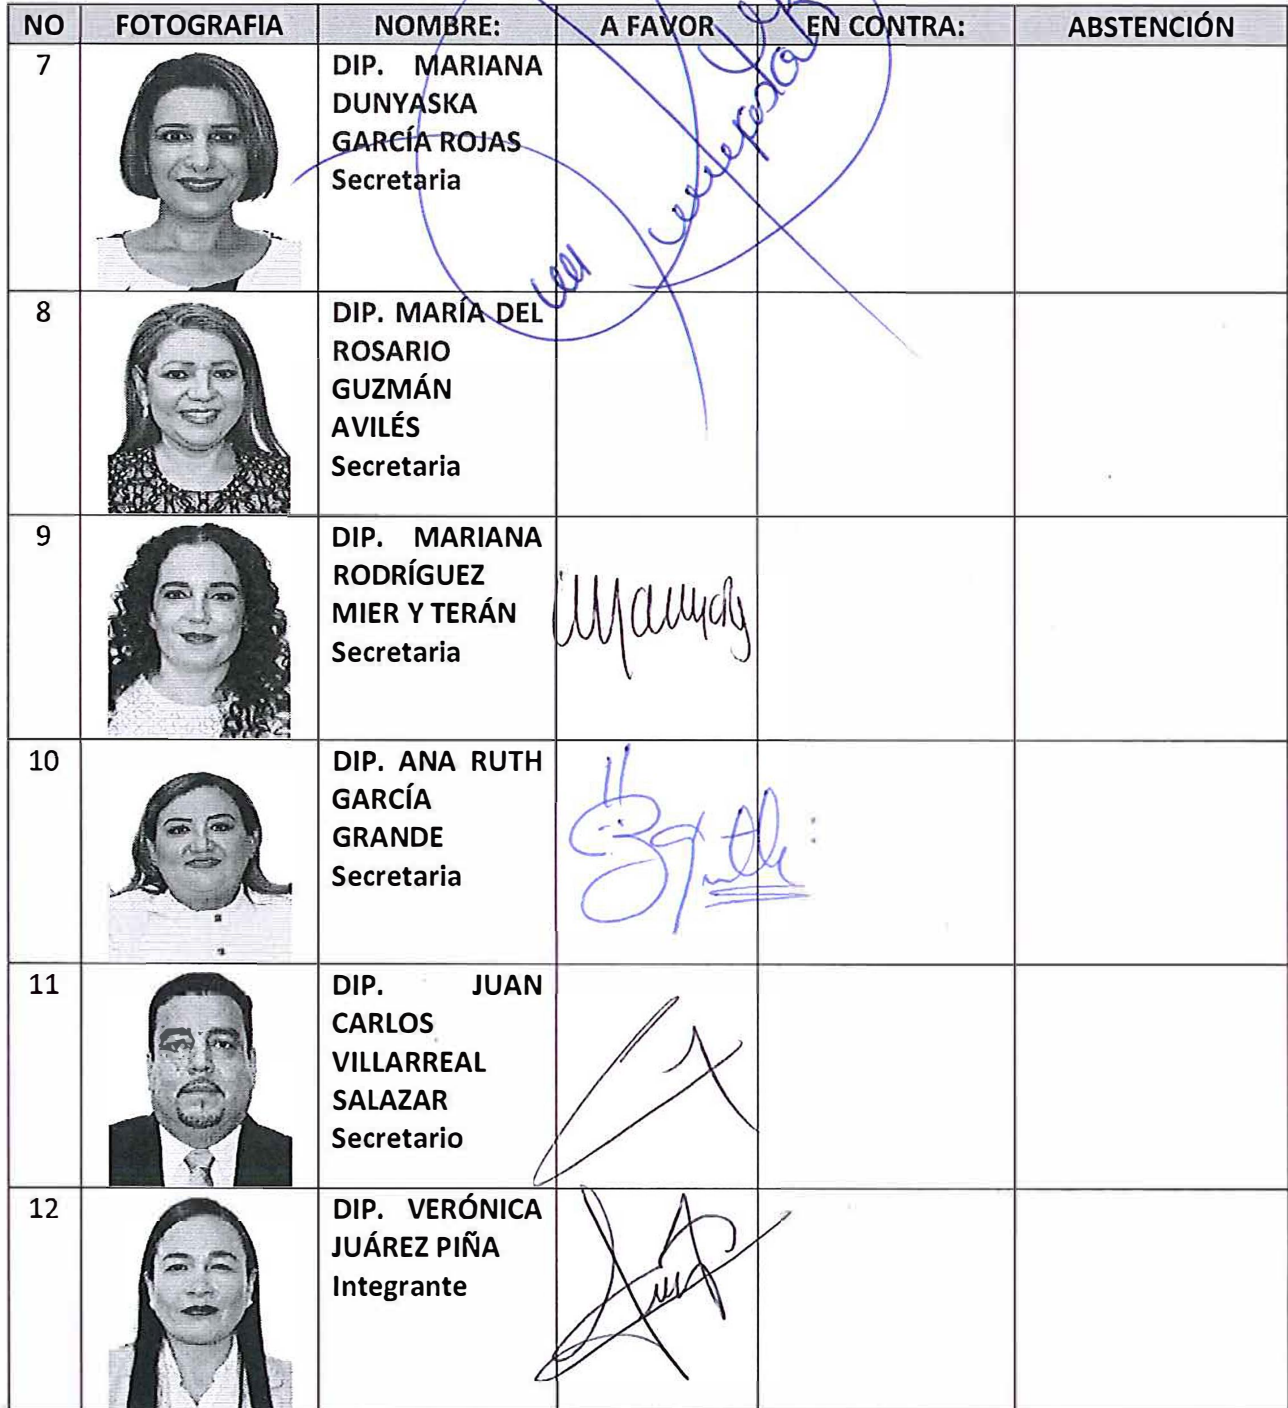 NO FOTOGRAFIA NOMBRE: A FAVOR EN CONTRA: ABSTENCIÓN
7 DIP. MARIANA
DUNYASKA
GARCÍA ROJAS
Secretaria
8 DIP. MARÍA DEL
ROSARIO
GUZMÁN
AVILÉS
Secretaria
9 DIP. MARIANA
RODRÍGUEZ
MIER Y TERÁN
Secretaria
10 DIP. ANA RUTH
GARCÍA
GRANDE
Secretaria
11 DIP. JUAN
CARLOS
VILLARREAL
SALAZAR
Secretario
12 DIP. VERÓNICA
JUÁREZ PIÑA
Integrante